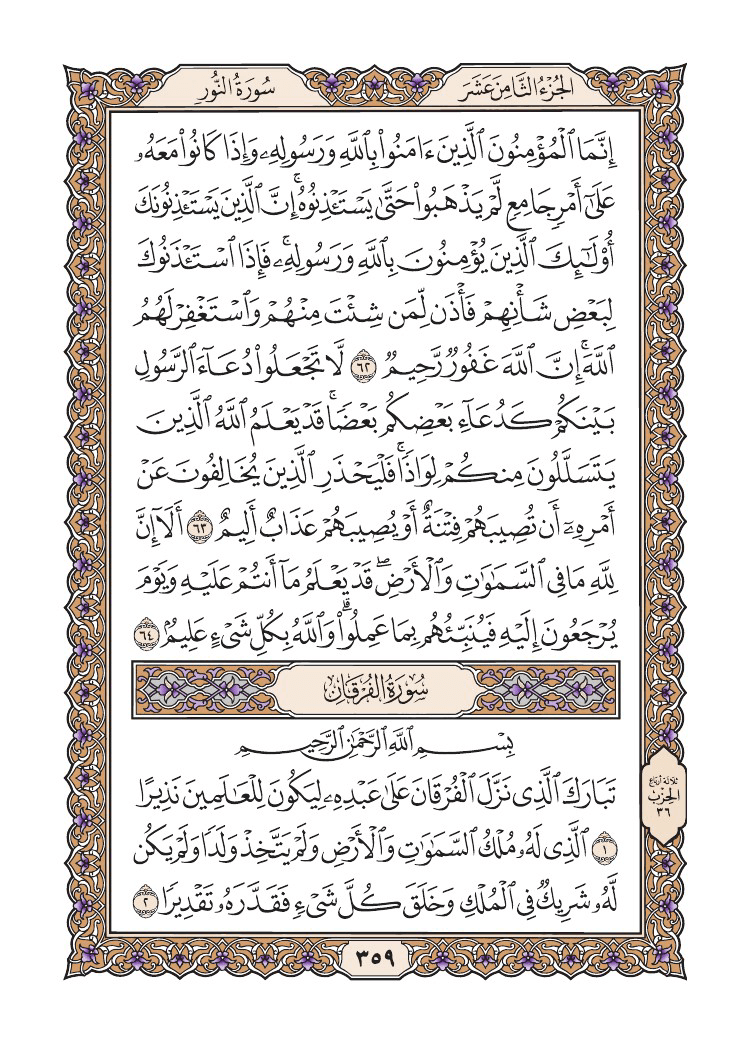 الجُزْءُ الثَّامِنَ عَشَرَ
سُورَةُ النُّورِ
إِنَّمَا ٱلْمُؤْمِنُونَ ٱلَّذِينَ ءَامَنُوا۟ بِٱللَّهِ وَرَسُولِهِۦ وَإِذَا كَانُوا۟ مَعَهُۥ
عَلَىٰٓ أَمْرٍ جَامِعٍ لَّمْ يَذْهَبُوا۟ حَتَّىٰ يَسْتَـْٔذِنُوهُ ۚ إِنَّ ٱلَّذِينَ يَسْتَـْٔذِنُونَكَ
أُو۟لَـٰٓئِكَ ٱلَّذِينَ يُؤْمِنُونَ بِٱللَّهِ وَرَسُولِهِۦ ۚ فَإِذَا ٱسْتَـْٔذَنُوكَ
لِبَعْضِ شَأْنِهِمْ فَأْذَن لِّمَن شِئْتَ مِنْهُمْ وَٱسْتَغْفِرْ لَهُمُ
ٱللَّهَ ۚ إِنَّ ٱللَّهَ غَفُورٌ رَّحِيمٌ ٦٢ لَّا تَجْعَلُوا۟ دُعَآءَ ٱلرَّسُولِ
بَيْنَكُمْ كَدُعَآءِ بَعْضِكُم بَعْضًا ۚ قَدْ يَعْلَمُ ٱللَّهُ ٱلَّذِينَ
يَتَسَلَّلُونَ مِنكُمْ لِوَاذًا ۚ فَلْيَحْذَرِ ٱلَّذِينَ يُخَالِفُونَ عَنْ
أَمْرِهِۦٓ أَن تُصِيبَهُمْ فِتْنَةٌ أَوْ يُصِيبَهُمْ عَذَابٌ أَلِيمٌ ٦٣ أَلَآ إِنَّ
لِلَّهِ مَا فِى ٱلسَّمَـٰوَٰتِ وَٱلْأَرْضِ ۖ قَدْ يَعْلَمُ مَآ أَنتُمْ عَلَيْهِ وَيَوْمَ
يُرْجَعُونَ إِلَيْهِ فَيُنَبِّئُهُم بِمَا عَمِلُوا۟ ۗ وَٱللَّهُ بِكُلِّ شَىْءٍ عَلِيمٌۢ ٦٤
سُورَةُ الفُرْقَانِ
بِسْمِ ٱللَّهِ ٱلرَّحْمَـٰنِ ٱلرَّحِيمِ
تَبَارَكَ ٱلَّذِى نَزَّلَ ٱلْفُرْقَانَ عَلَىٰ عَبْدِهِۦ لِيَكُونَ لِلْعَـٰلَمِينَ نَذِيرًا
١ ٱلَّذِى لَهُۥ مُلْكُ ٱلسَّمَـٰوَٰتِ وَٱلْأَرْضِ وَلَمْ يَتَّخِذْ وَلَدًا وَلَمْ يَكُن
لَّهُۥ شَرِيكٌ فِى ٱلْمُلْكِ وَخَلَقَ كُلَّ شَىْءٍ فَقَدَّرَهُۥ تَقْدِيرًا ٢
ثلاثة أرباع
الحزب
٣٦
٣٥٩